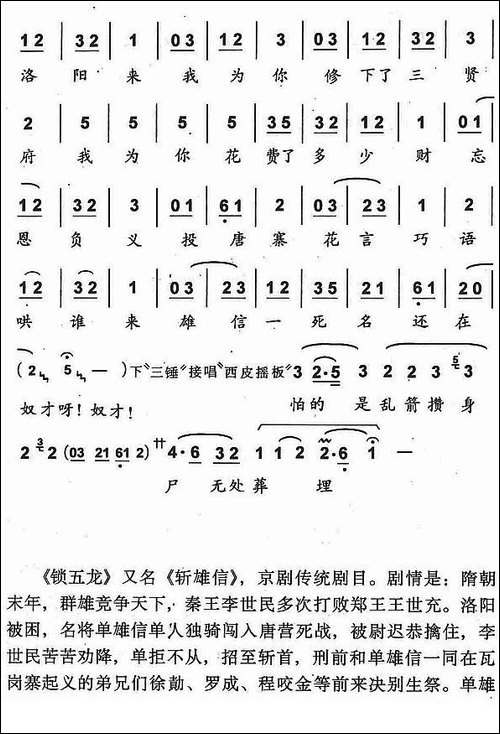 12 | 32 | 1 | 03 | 12 | 3 | 03 | 12 | 32 | 3
洛 阳 来 我 为 你 修 下了 三 贤
2 | 5 | 5 | 5 | 5 | 35 | 32 | 12 | 1 | 01
府 我 为 你 花 费了 多 少 财 忘
12 | 32 | 3 | 01 | 61 | 2 | 03 | 23 | 1 | 2
恩 负 义 投 唐 寨 花 言 巧 语
12 | 32 | 1 | 03 | 23 | 12 | 35 | 21 | 61 | 20
哄 谁 来 雄 信 一 死 名 还 在
(2 5 —) 下“三锤”接唱“西皮摇板”3 2·5 3 2 2 3 5 3
奴才呀！奴才！ 怕的 是 乱 箭 攒 身
2 3 2 (03 21 61 2) 廿 4·6 32 1 1 2 2·6 1 —
尸 无处 葬 埋
《锁五龙》又名《斩雄信》，京剧传统剧目。剧情是：隋朝
末年，群雄竞争天下，秦王李世民多次打败郑王王世充。洛阳
被困，名将单雄信单人独骑闯入唐营死战，被尉迟恭擒住，李
世民苦苦劝降，单拒不从，招至斩首，刑前和单雄信一同在瓦
岗寨起义的弟兄们徐勣、罗成、程咬金等前来决别生祭。单雄